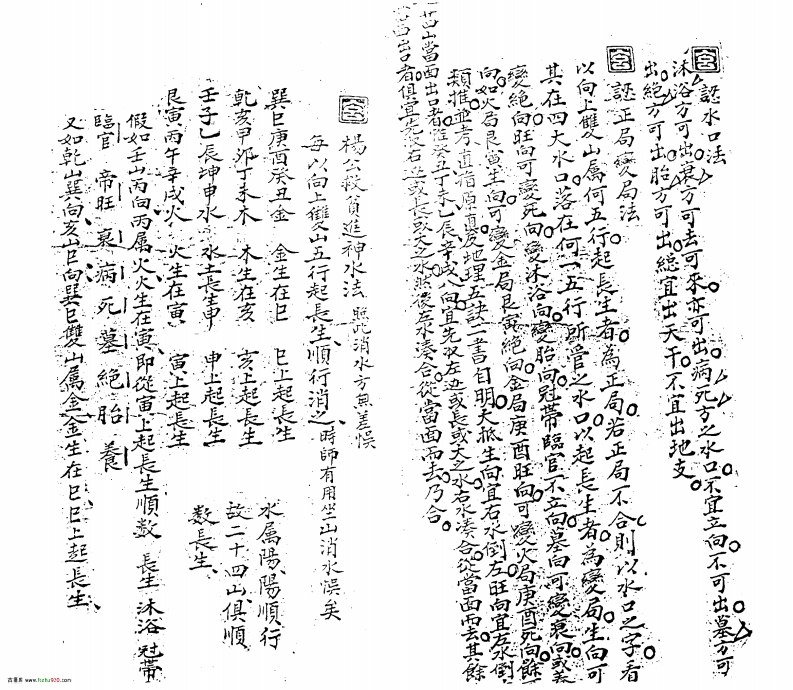 認水口法
沐浴方可出衰方可去可來亦可出病死方之水口不宜立向不可出墓方可
出絕方可出胎方可出總宜出天干不宜出地支
認正局變局法
以向上雙山屬何五行起長生者為正局若正局不合則以水口之字看
其在四大水口落在何一五行所管之水口以起長生者為變局生向可
變絕向旺向可變死向變沐浴向變胎向冠帶臨官不立向墓向可變衰向或養
向如火局艮寅生向可變金局艮寅絕向金局庚酉旺向可變火局庚酉死向餘可
類推並考直指原真及地理五訣二書自明大抵生向宜右水倒左旺向宜左水倒
右出口者惟癸丑丁未乙辰辛戌八向宜先收左邊或長或大之水右水湊合從當面而去其餘
廿四山當面出口者俱宜先收右邊或長或大之水然後左水湊合從當面而去乃合
楊公救貧進神水法 照此消水方無差悞
每以向上雙山五行起長生順行消之 時師有用坐山消水悞矣
巽巳庚酉癸丑金 金生在巳 巳上起長生
乾亥甲卯丁未木 木生在亥 亥上起長生
壬子乙辰坤申水 水土長生申 申上起長生
艮寅丙午辛戌火 火生在寅 寅上起長生
水属陽陽順行
故二十四山俱順
數長生
假如壬山丙向丙属火火生在寅即從寅上起長生順数 長生 沐浴 冠帶
臨官 帝旺 衰 病 死 墓 絕 胎 養
又如乾山巽向亥山巳向巽巳雙山属金金生在巳巳上起長生
古易库 www.hzhu920.com